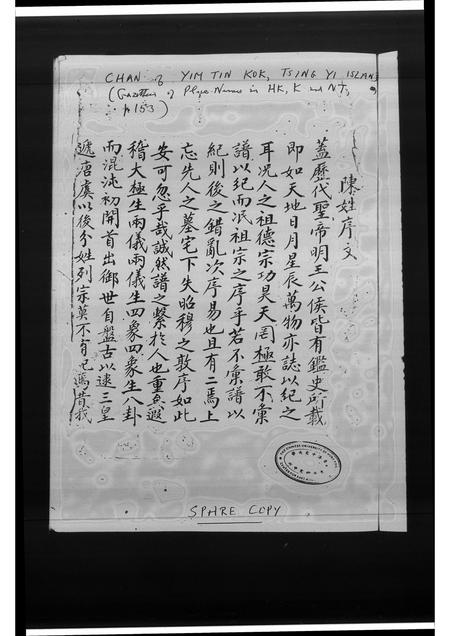 CHAN of YIM TIN KOK, TSING YI ISLAND
(Gazetteer of Place Names in HK, K and NT,
p 153)
陳姓序文
蓋歷代聖帝明王公侯皆有鑑史所載
即如天地日月星辰萬物亦誌以紀之
耳况人之祖德宗功昊天罔極敢不彙
譜以紀而冺祖宗之序乎若不彙譜以
紀則後之錯亂次序易也且有二焉上
忘先人之墓宅下失昭穆之敦序如此
安可忽乎哉誠然譜之繫於人也重矣遐
稽大極生兩儀兩儀生四象四象生八卦
而混沌初開首出御世自盤古以逮三皇
遞唐虞以後分姓列宗莫不有已焉昔我
THE CHINESE UNIVERSITY OF HONG KONG
SPARE COPY